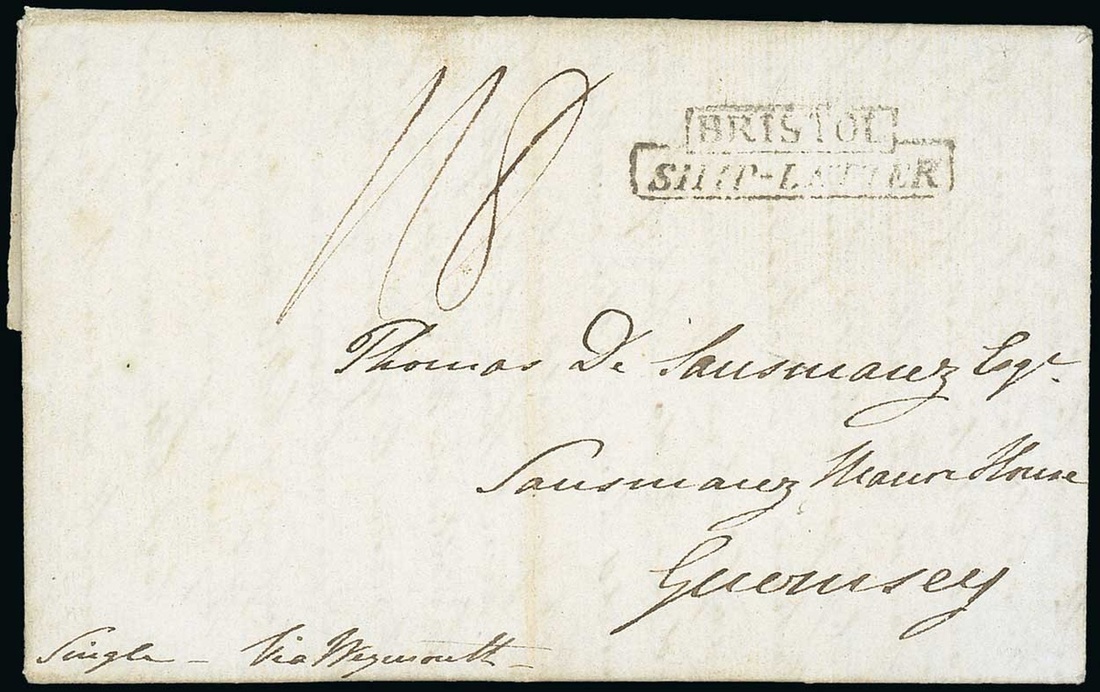 1/8
BRISTOL
SHIP-LETTER
Thomas De Sausmarez Esqr.
Sausmarez Manor House
Guernsey
Single - Via Weymouth -